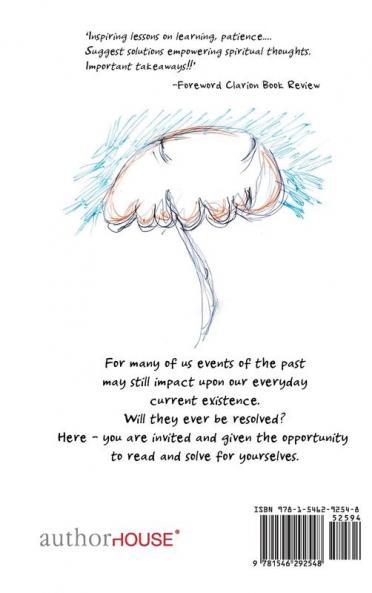 'Inspiring lessons on learning, patience....
Suggest solutions empowering spiritual thoughts.
Important takeaways!!'
-Foreword Clarion Book Review
For many of us events of the past
may still impact upon our everyday
current existence.
Will they ever be resolved?
Here - you are invited and given the opportunity
to read and solve for yourselves.
ISBN 978-1-5462-9254-8
52594
authorHOUSE®
9 781546 292548